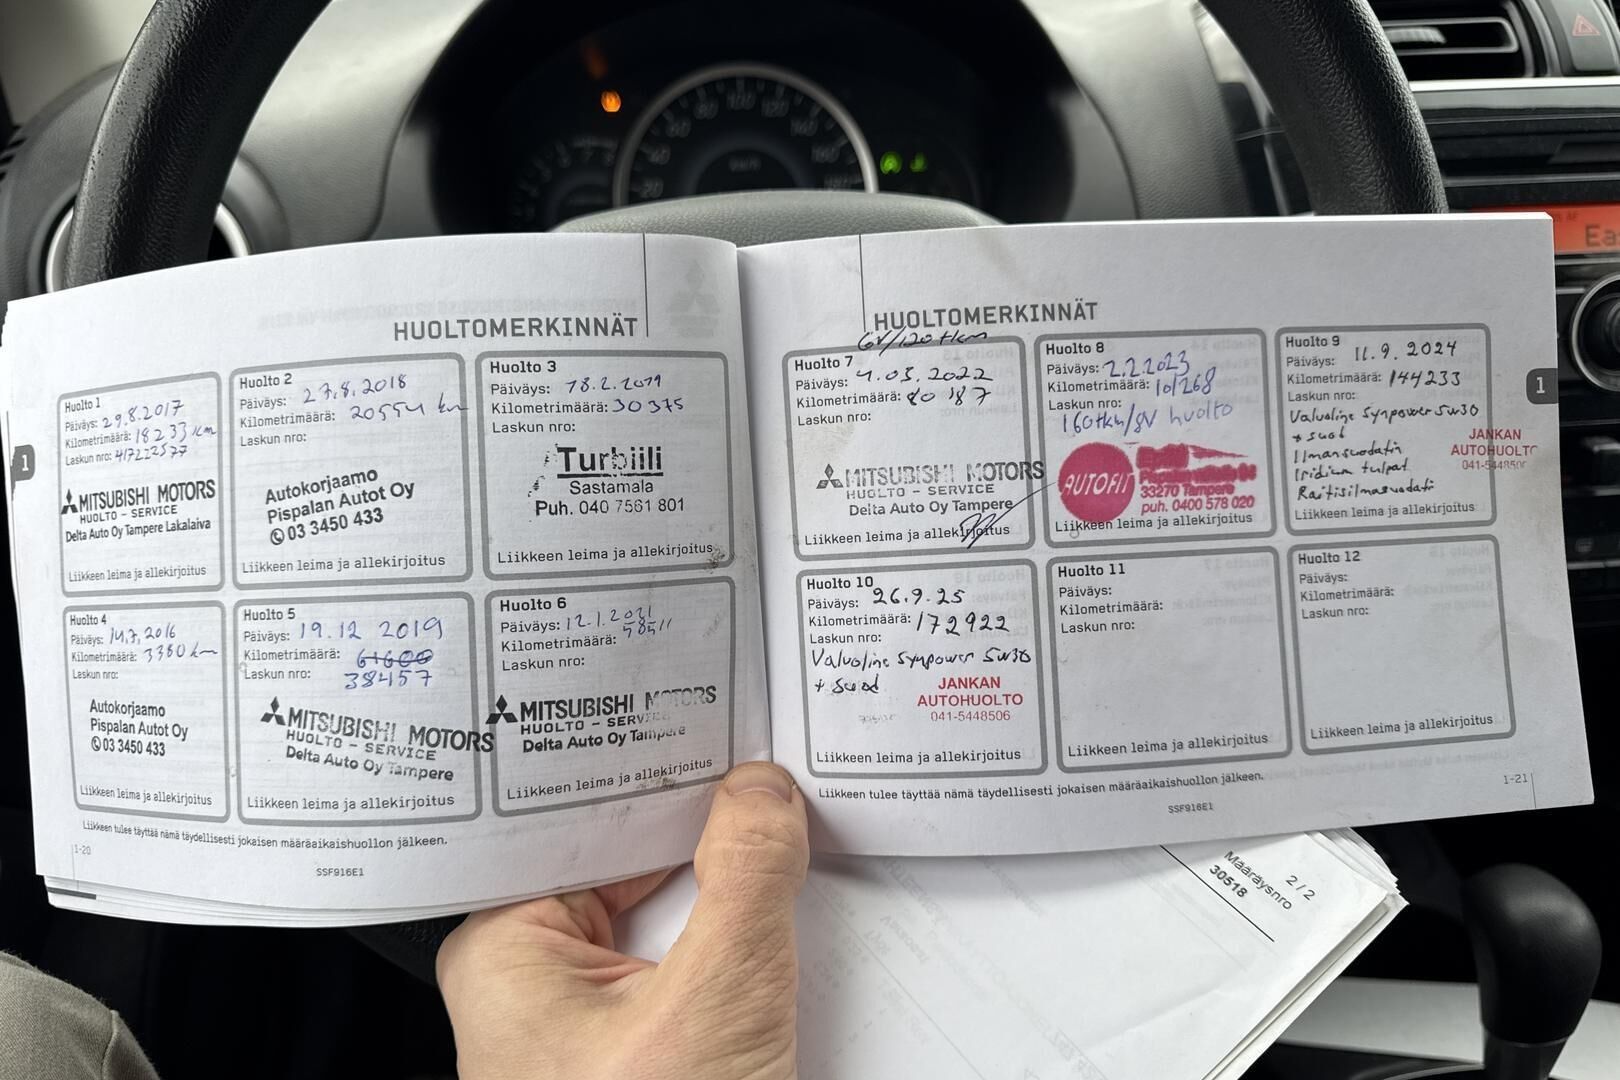 HUOLTOMERKINNÄT
Huolto 1
Päiväys: 29.8.2017
Kilometrimäärä: 18233 km
Laskun nro: 417222577
MITSUBISHI MOTORS
HUOLTO - SERVICE
Delta Auto Oy Tampere Lakalaiva
Liikkeen leima ja allekirjoitus
Huolto 2
Päiväys: 27.8.2018
Kilometrimäärä: 20554 km
Laskun nro:
Autokorjaamo
Pispalan Autot Oy
03 3450 433
Liikkeen leima ja allekirjoitus
Huolto 3
Päiväys: 18.2.2019
Kilometrimäärä: 30375
Laskun nro:
Turbiili
Sastamala
Puh. 040 7561 801
Liikkeen leima ja allekirjoitus
Huolto 4
Päiväys: 14.7.2016
Kilometrimäärä: 3380 km
Laskun nro:
Autokorjaamo
Pispalan Autot Oy
03 3450 433
Liikkeen leima ja allekirjoitus
Huolto 5
Päiväys: 19.12 2019
Kilometrimäärä: 61600
Laskun nro: 38457
MITSUBISHI MOTORS
HUOLTO - SERVICE
Delta Auto Oy Tampere
Liikkeen leima ja allekirjoitus
Huolto 6
Päiväys: 12.1.2021
Kilometrimäärä: 58511
Laskun nro:
MITSUBISHI MOTORS
HUOLTO - SERVICE
Delta Auto Oy Tampere
Liikkeen leima ja allekirjoitus
Liikkeen tulee täyttää nämä täydellisesti jokaisen määräaikaishuollon jälkeen.
1-20
SSF916E1
1
HUOLTOMERKINNÄT
6V/120tkm
Huolto 7
Päiväys: 4.03.2022
Kilometrimäärä: 80187
Laskun nro:
MITSUBISHI MOTORS
HUOLTO - SERVICE
Delta Auto Oy Tampere
Liikkeen leima ja allekirjoitus
Huolto 8
Päiväys: 2.2.2023
Kilometrimäärä: 101268
Laskun nro:
160tkm/8V huolto
AUTOFIT
33270 Tampere
puh. 0400 578 020
Liikkeen leima ja allekirjoitus
Huolto 9
Päiväys: 11.9.2024
Kilometrimäärä: 144233
Laskun nro:
Valvoline Synpower 5w30
+ suod
Ilmansuodatin
Iridium tulpat
Raitisilmasuodatin
JANKAN
AUTOHUOLTO
041-5448506
Liikkeen leima ja allekirjoitus
Huolto 10
Päiväys: 26.9.25
Kilometrimäärä: 172922
Laskun nro:
Valvoline Synpower 5w30
+ suod
JANKAN
AUTOHUOLTO
041-5448506
Liikkeen leima ja allekirjoitus
Huolto 11
Päiväys:
Kilometrimäärä:
Laskun nro:
Liikkeen leima ja allekirjoitus
Huolto 12
Päiväys:
Kilometrimäärä:
Laskun nro:
Liikkeen leima ja allekirjoitus
Liikkeen tulee täyttää nämä täydellisesti jokaisen määräaikaishuollon jälkeen.
SSF916E1
1-21
1
2/2
Määräysnro
30518